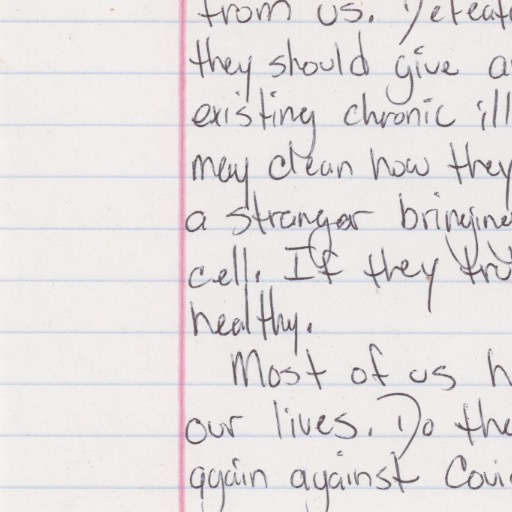 from us. Defeat
they should give a
existing chronic ill
may clean how they
a stranger bringing
cell. If they tru
healthy.
Most of us h
our lives. Do the
again against Covi